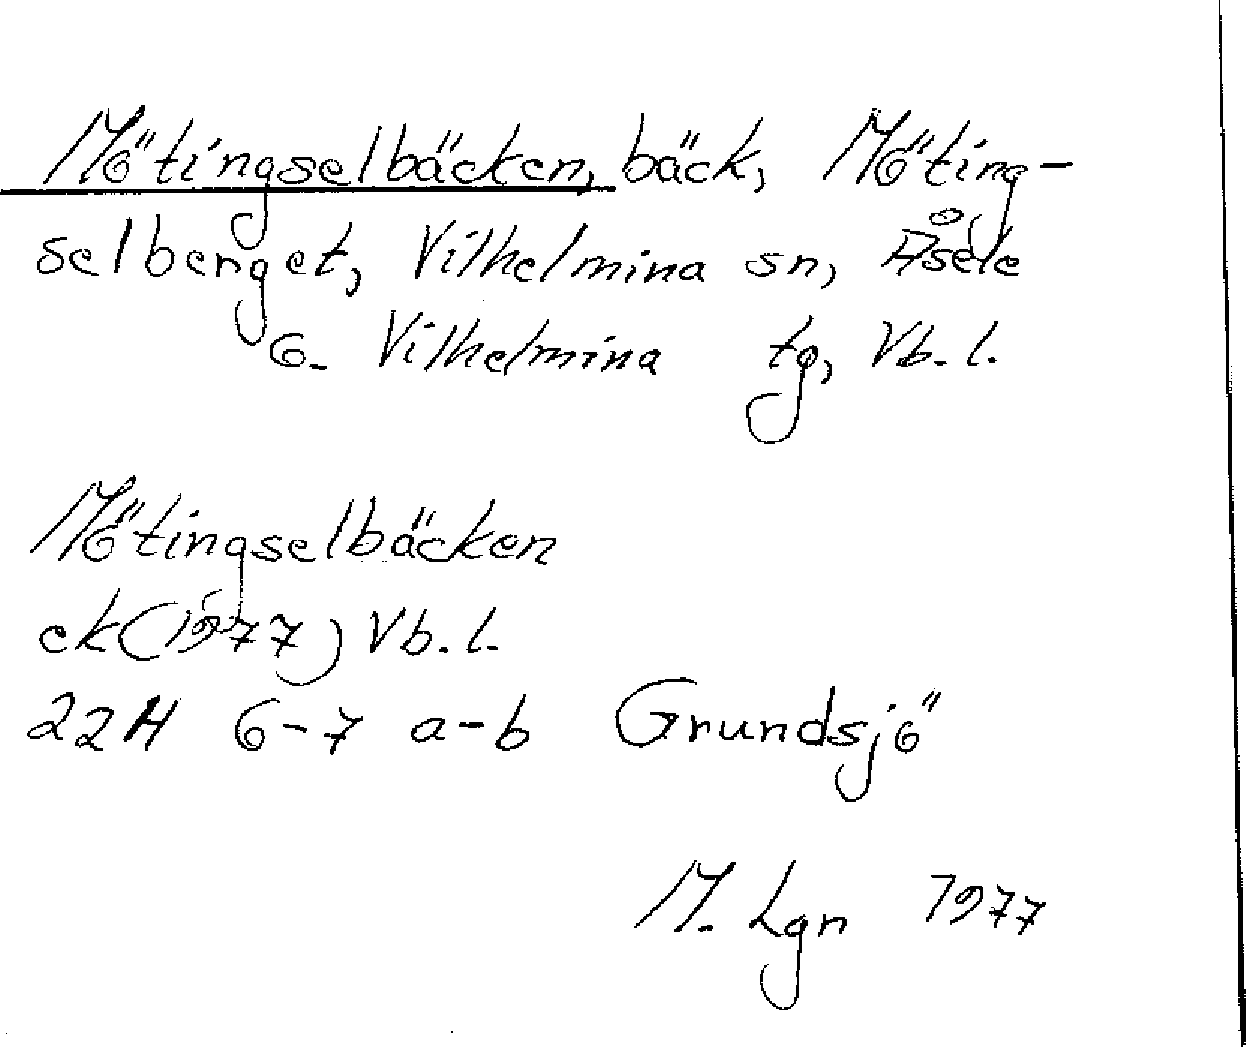 Mötingselbäcken, bäck, Möting-
selberget, Vilhelmina sn, Åsele
o. Vilhelmina tg, Vb. l.
Mötingselbäcken
ek (1977) Vb. l.
22H 6-7 a-b Grundsjö
M. Lgn 1977